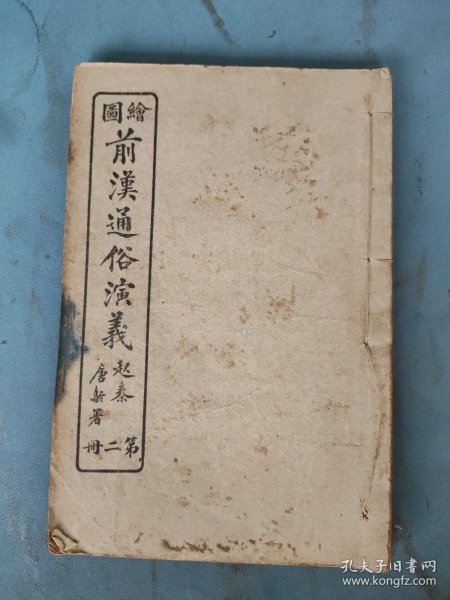 繪圖
前漢通俗演義
起秦
唐駝署
第二冊
孔夫子旧书网
www.kongfz.com